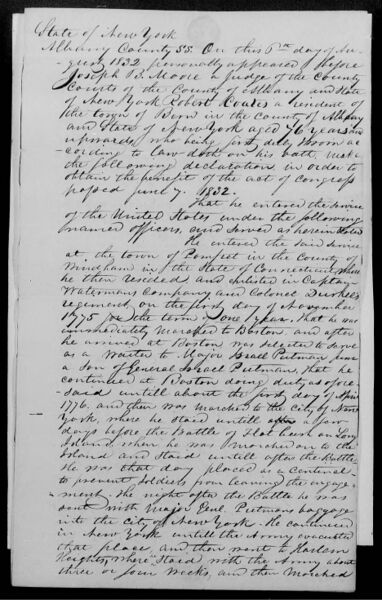 State of New York
Albany County SS. On this 6th day of Au-
gust 1832 personally appeared before
Joseph B. Moore a judge of the County
Courts of the County of Albany and State
of New York Robert Coates a resident of
the town of Bern in the County of Albany
and State of New York aged 76 years and
upwards, who being first duly sworn ac-
cording to law doth on his oath, make
the following declaration in order to
obtain the benefit of the act of congress
passed June 7. 1832.
That he entered the service
of the United States under the following
named officers, and served as herein stated
He entered the said service
at the town of Pomfret in the County of
Windham in the State of Connecticut, where
he then resided and enlisted in Captain
Watermans Company and Colonel Durkee's
regiment, on the first day of November
1775 for the term of one year. That he was
immediately marched to Boston, and after
he arrived at Boston was selected to serve
as a waiter to Major Israel Putman
a son of General Israel Putman, that he
continued at Boston doing duty as afore-
said untill about the first day of April
1776. and then was marched to the City of New
York, where he staid untill a few
days before the Battle of Flat bush on Long
Island, when he was marched on to the
Island and staid untill after the Battle
He was that day placed as a centinal
to prevent Soldiers from leaving the engage-
ment. The night after the Battle he was
sent with Major Genl. Putmans baggage
into the city of New York. He continued
in New York untill the Army evacuated
that place, and then went to Harlem
Heights, where staid with the Army about
three or four weeks, and then marched